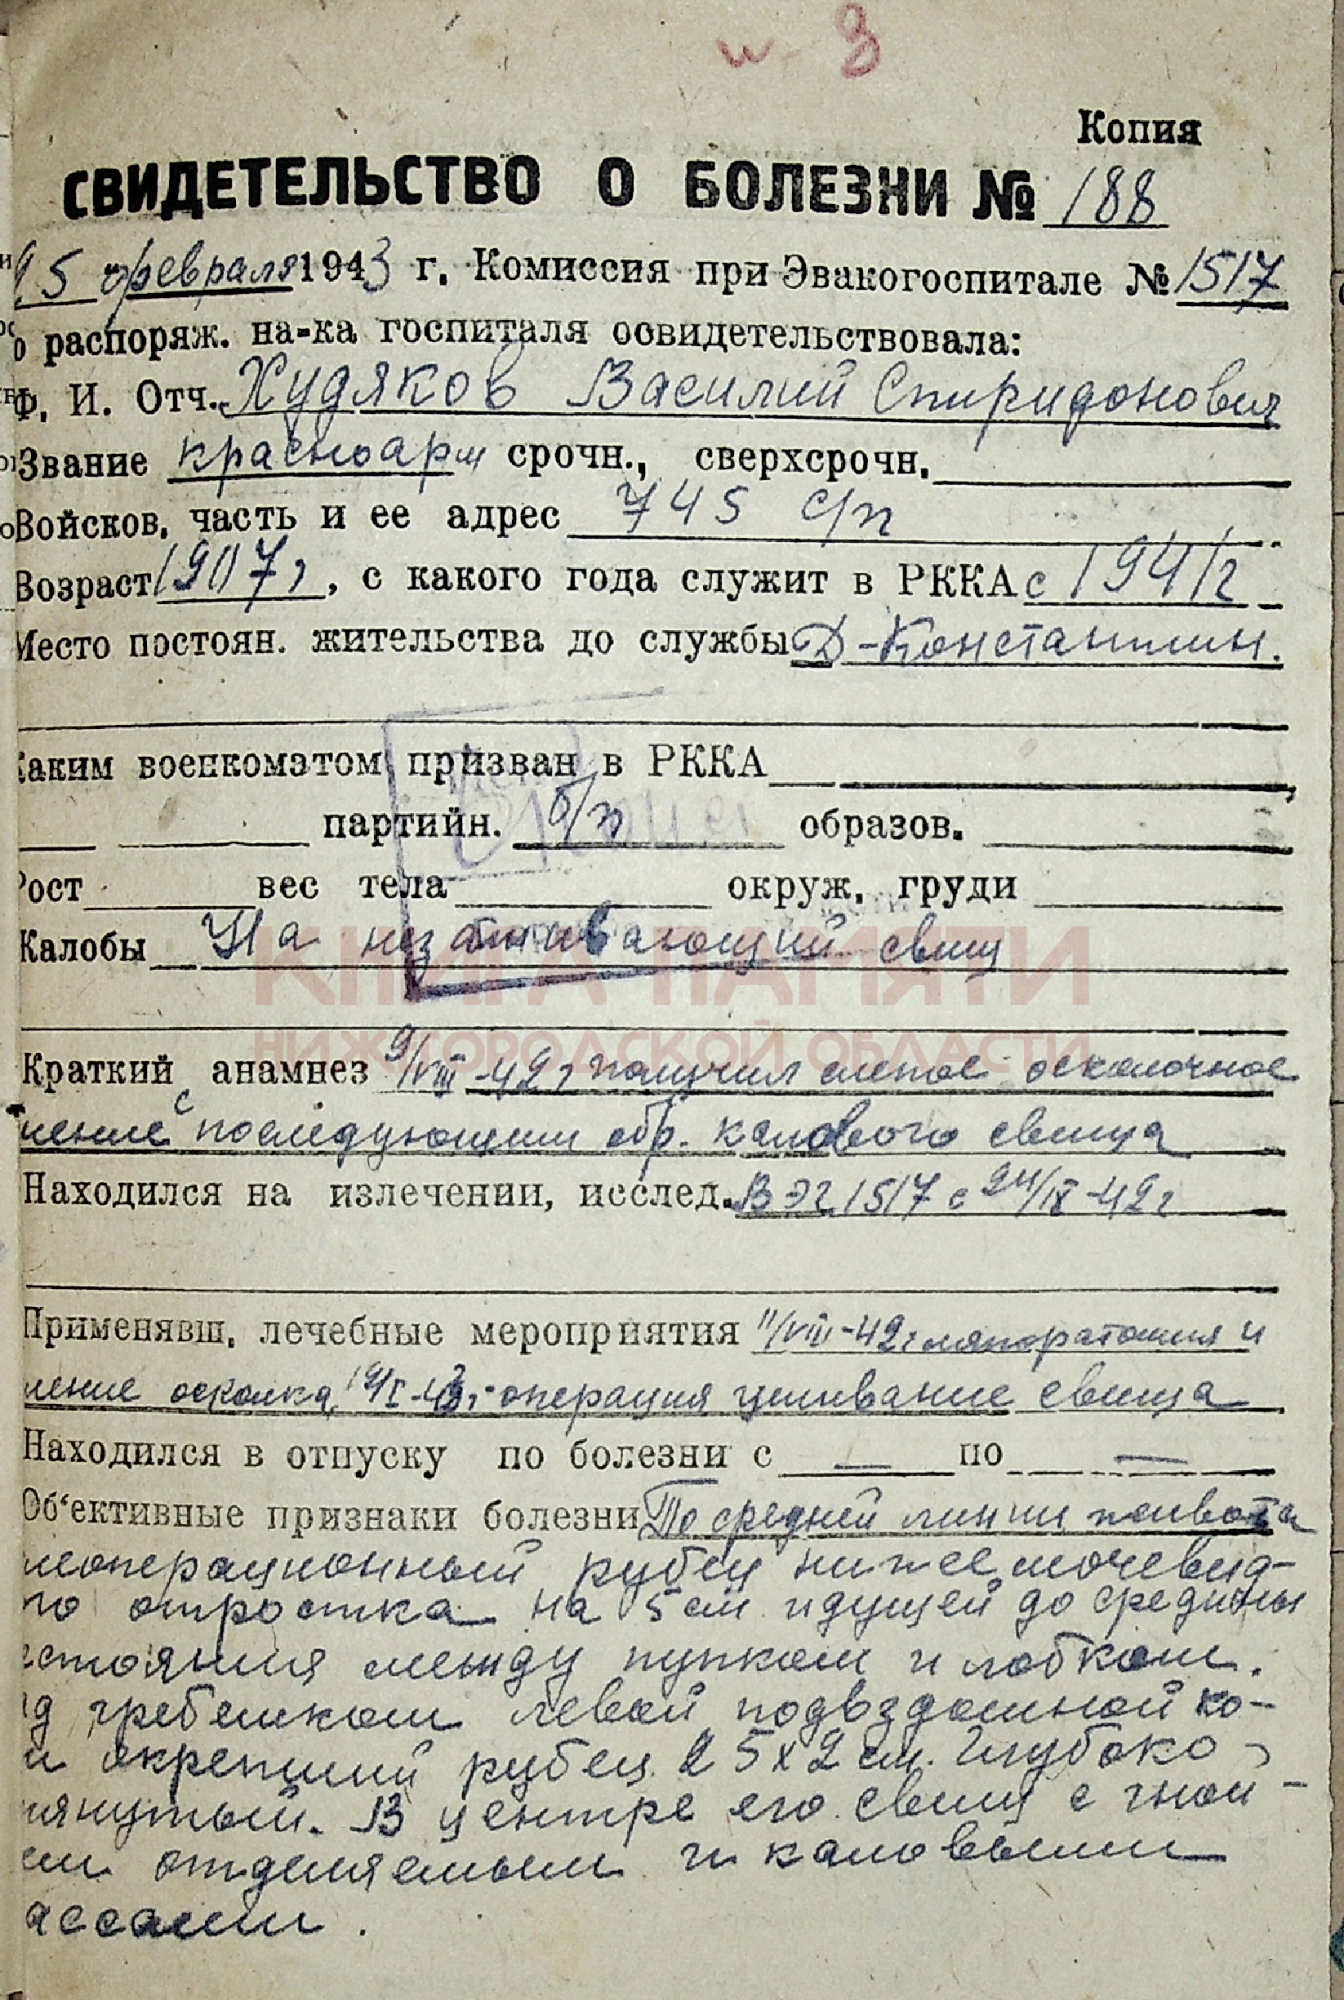 Копия
СВИДЕТЕЛЬСТВО О БОЛЕЗНИ № 188
15 февраля 1943 г. Комиссия при Эвакогоспитале № 1517
о распоряж. на-ка госпиталя освидетельствовала:
Ф. И. Отч. Худяков Василий Спиридонович
Звание красноарм срочн., сверхсрочн.
Войсков. часть и ее адрес 745 с/п
Возраст 1907 г, с какого года служит в РККА с 1941 г
Место постоян. жительства до службы Д-Константин.
Каким военкоматом призван в РККА
партийн. б/п образов.
Рост вес тела окруж. груди
Жалобы На незаживающий свищ
КНИГА ПАМЯТИ
НИЖЕГОРОДСКОЙ ОБЛАСТИ
Краткий анамнез 9/VIII-42 г получил слепое осколочное
нение с последующим обр. калового свища
Находился на излечении, исслед. В ЭГ 1517 с 24/IX-42 г
Применявш. лечебные мероприятия 11/VIII-42 г ляпоратомия и
ление осколка, 19/I-43 г. операция ушивание свища
Находился в отпуску по болезни с — по —
Об'ективные признаки болезни По средней линии живота
леоперационный рубец ниже мочевид-
го отростка на 5 см идущей до средины
стояния между пупком и лобком.
д гребешком левой подвздошной ко-
и окрепший рубец 2 5 х 2 см. Глубоко
тянутый. В центре его свищ с гной-
ем отделяемым и каловыми
ассами.